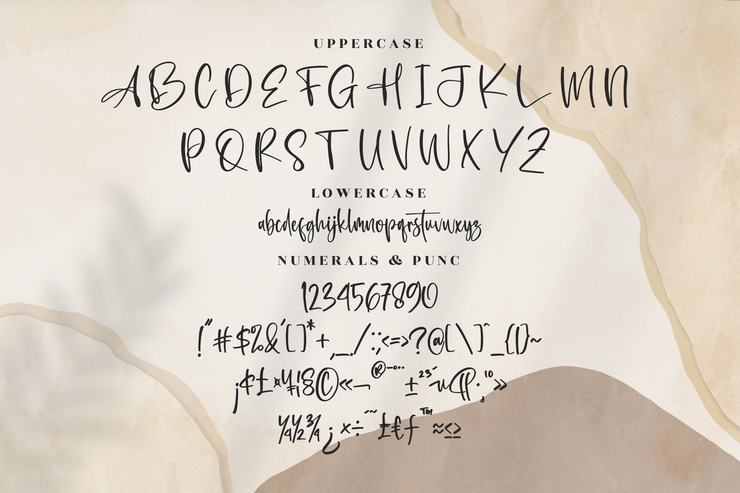 UPPERCASE
ABCDEFGHIJKLMN
PQRSTUVWXYZ
LOWERCASE
abcdefghijklmnopqrstuvwxyz
NUMERALS & PUNC
1234567890
!"#$%&'()*+,_./:;<=>?@[\]^_{|}~
¡¢£¤¥¦§©«¬®¯°±²³´µ¶·¸¹º»
¼½¾¿×÷ˆ˜£€ƒ™≈≤≥